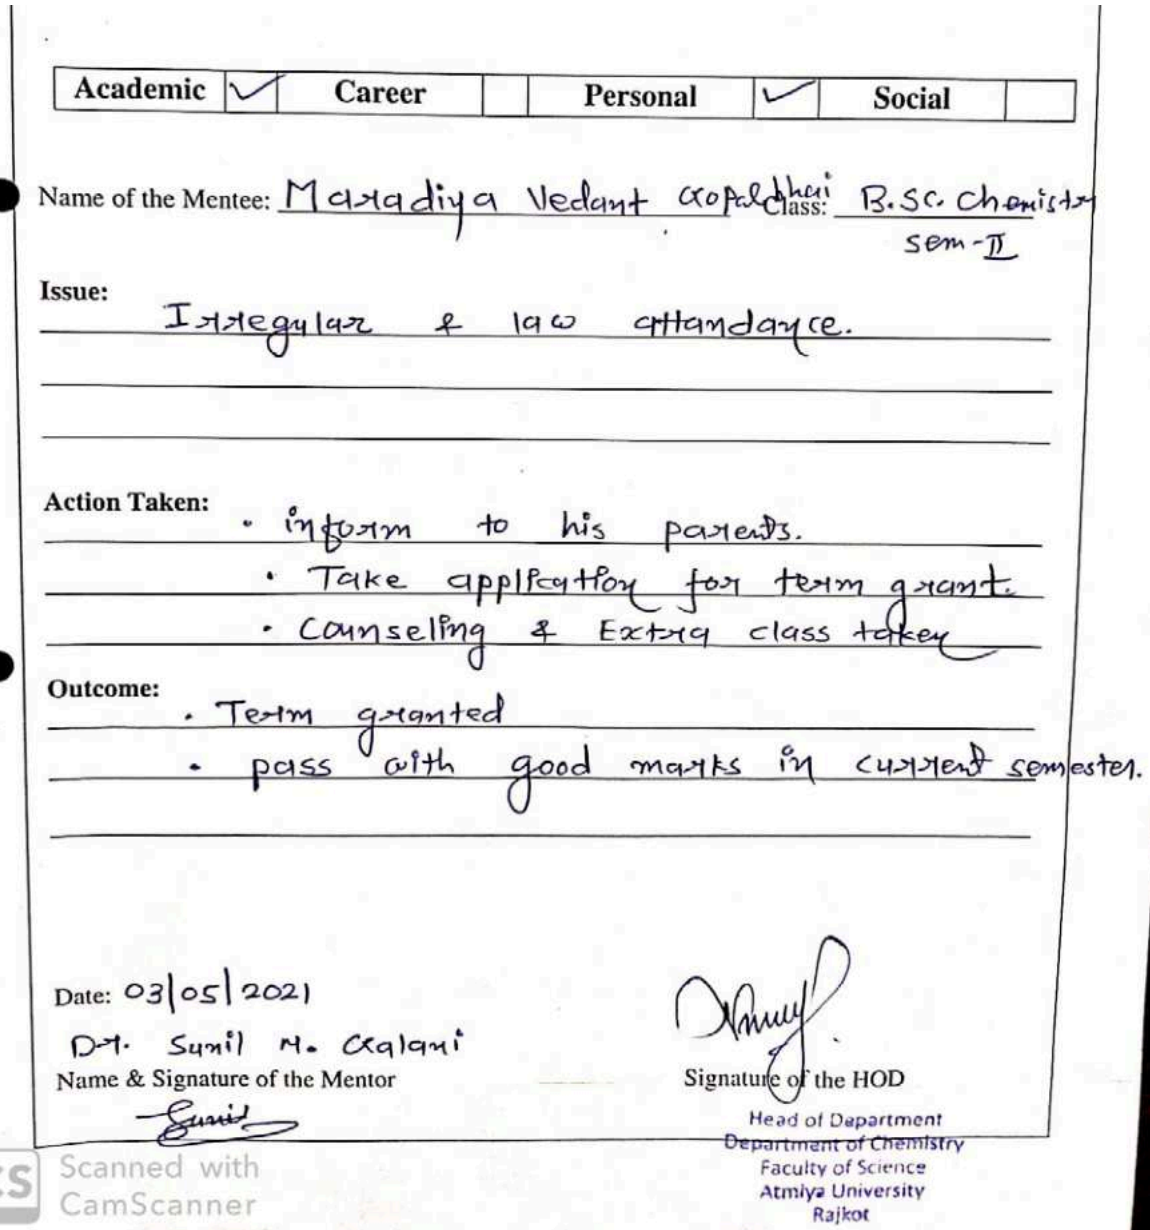 Academic ✓ Career Personal ✓ Social
Name of the Mentee: Maradiya Vedant Gopalbhai Class: B.Sc. Chemistry
sem-II
Issue:
Irregular & law attandance.
Action Taken:
• inform to his parents.
• Take application for term grant.
• Counseling & Extra class taken
Outcome:
• Term granted
• pass with good marks in current semester.
Date: 03/05/2021
Dr. Sunil M. Galani
Name & Signature of the Mentor
Sunil
Signature of the HOD
Head of Department
Department of Chemistry
Faculty of Science
Atmiya University
Rajkot
CS Scanned with
CamScanner